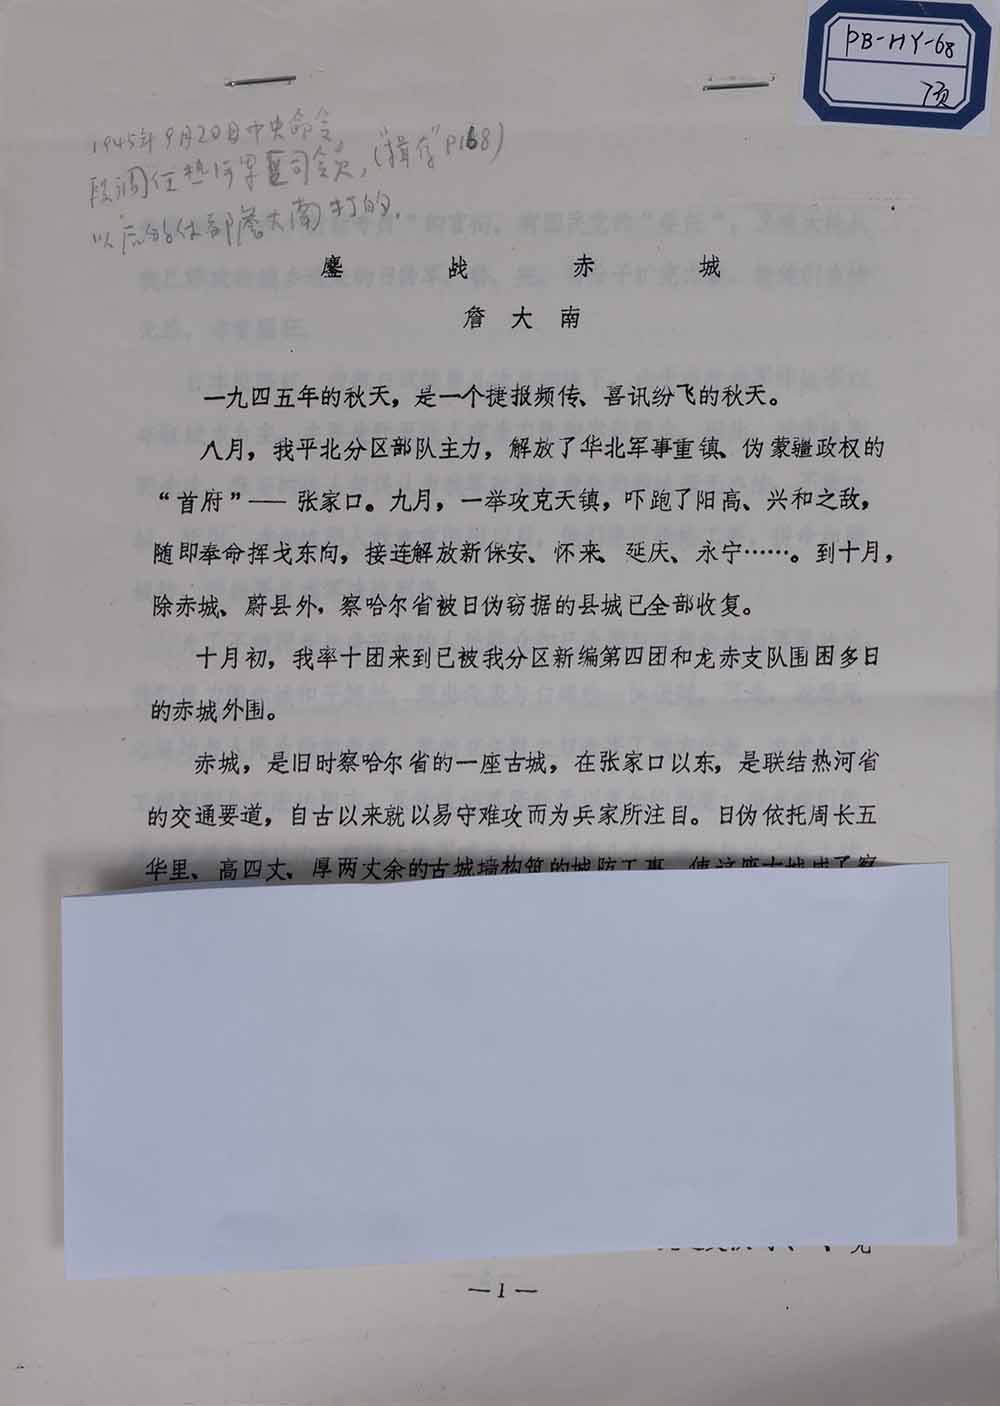 PB-HY-68
7页
1945年9月20日中央命令,
段调任热河军区司令员,("辑存"P168)
以后的仗都詹大南打的.
鏖战赤城
詹大南
一九四五年的秋天，是一个捷报频传、喜讯纷飞的秋天。
八月，我平北分区部队主力，解放了华北军事重镇、伪蒙疆政权的
“首府”—— 张家口。九月，一举攻克天镇，吓跑了阳高、兴和之敌，
随即奉命挥戈东向，接连解放新保安、怀来、延庆、永宁……。到十月，
除赤城、蔚县外，察哈尔省被日伪窃据的县城已全部收复。
十月初，我率十团来到已被我分区新编第四团和龙赤支队围困多日
的赤城外围。
赤城，是旧时察哈尔省的一座古城，在张家口以东，是联结热河省
的交通要道，自古以来就以易守难攻而为兵家所注目。日伪依托周长五
华里、高四丈、厚两丈余的古城墙构筑的城防工事，使这座古城成了察
—1—